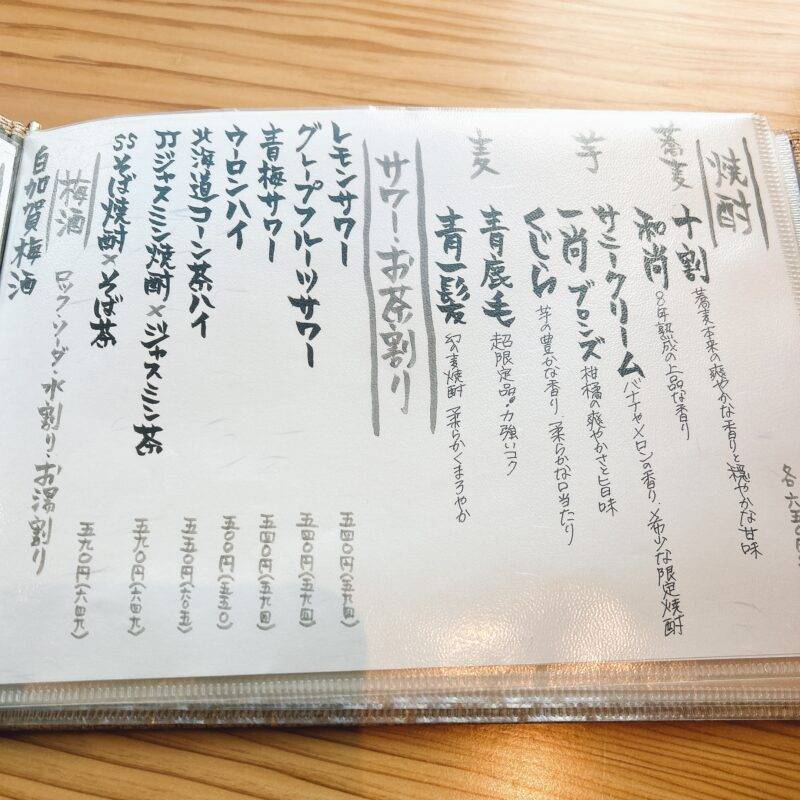 焼酎
各六五〇円
蕎麦
十割 蕎麦本来の爽やかな香りと穏やかな甘味
和尚 8年熟成の上品な香り
芋
サニークリーム バナナやメロンの香り、希少な限定焼酎
一尚ブロンズ 柑橘の爽やかさと旨味
くじら 芋の豊かな香り、柔らかな口当たり
麦
青鹿毛 超限定品。力強いコク
青一髪 幻の麦焼酎 柔らかくまろやか
サワー・お茶割り
レモンサワー 五四〇円(五九四)
グレープフルーツサワー 五四〇円(五九四)
青梅サワー 五四〇円(五九四)
ウーロンハイ 五〇〇円(五五〇)
北海道コーン茶ハイ 五五〇円(六〇五)
JJジャスミン焼酎×ジャスミン茶 五九〇円(六四九)
SSそば焼酎×そば茶 五九〇円(六四九)
梅酒 ロック・ソーダ・水割り・お湯割り
白加賀梅酒